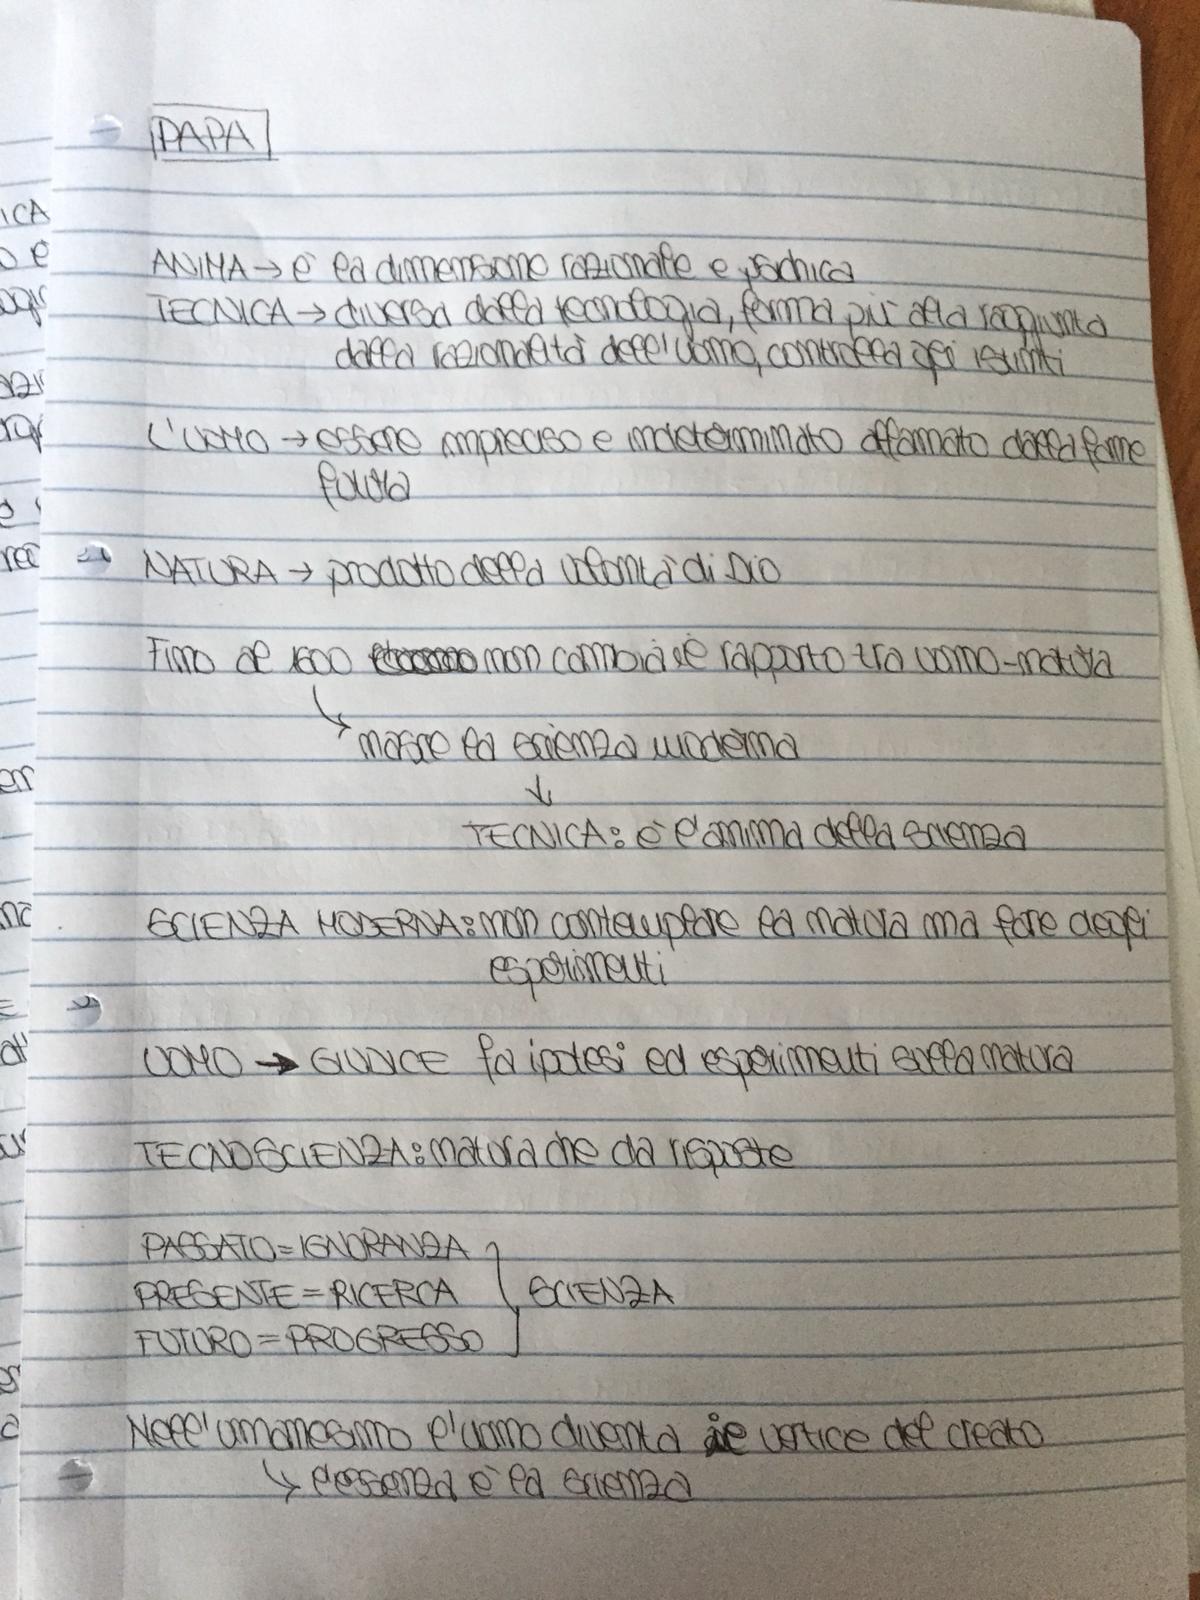 PAPA
ANIMA → è la dimensione razionale e psichica
TECNICA → diversa dalla tecnologia, forma più alta raggiunta
dalla razionalità dell'uomo, controlla gli istinti
L'UOMO → essere impreciso e indeterminato affamato dalla fame
futura
NATURA → prodotto della volontà di Dio
Fino al 1600 non cambia il rapporto tra uomo-natura
↳ nasce la scienza moderna
↓
TECNICA: è l'anima della scienza
SCIENZA MODERNA: non contemplare la natura ma fare degli
esperimenti
UOMO → GIUDICE fa ipotesi ed esperimenti sulla natura
TECNOSCIENZA: natura che da risposte
PASSATO = IGNORANZA
PRESENTE = RICERCA } SCIENZA
FUTURO = PROGRESSO
Nell'umanesimo l'uomo diventa il vertice del creato
↳ l'essenza è la scienza